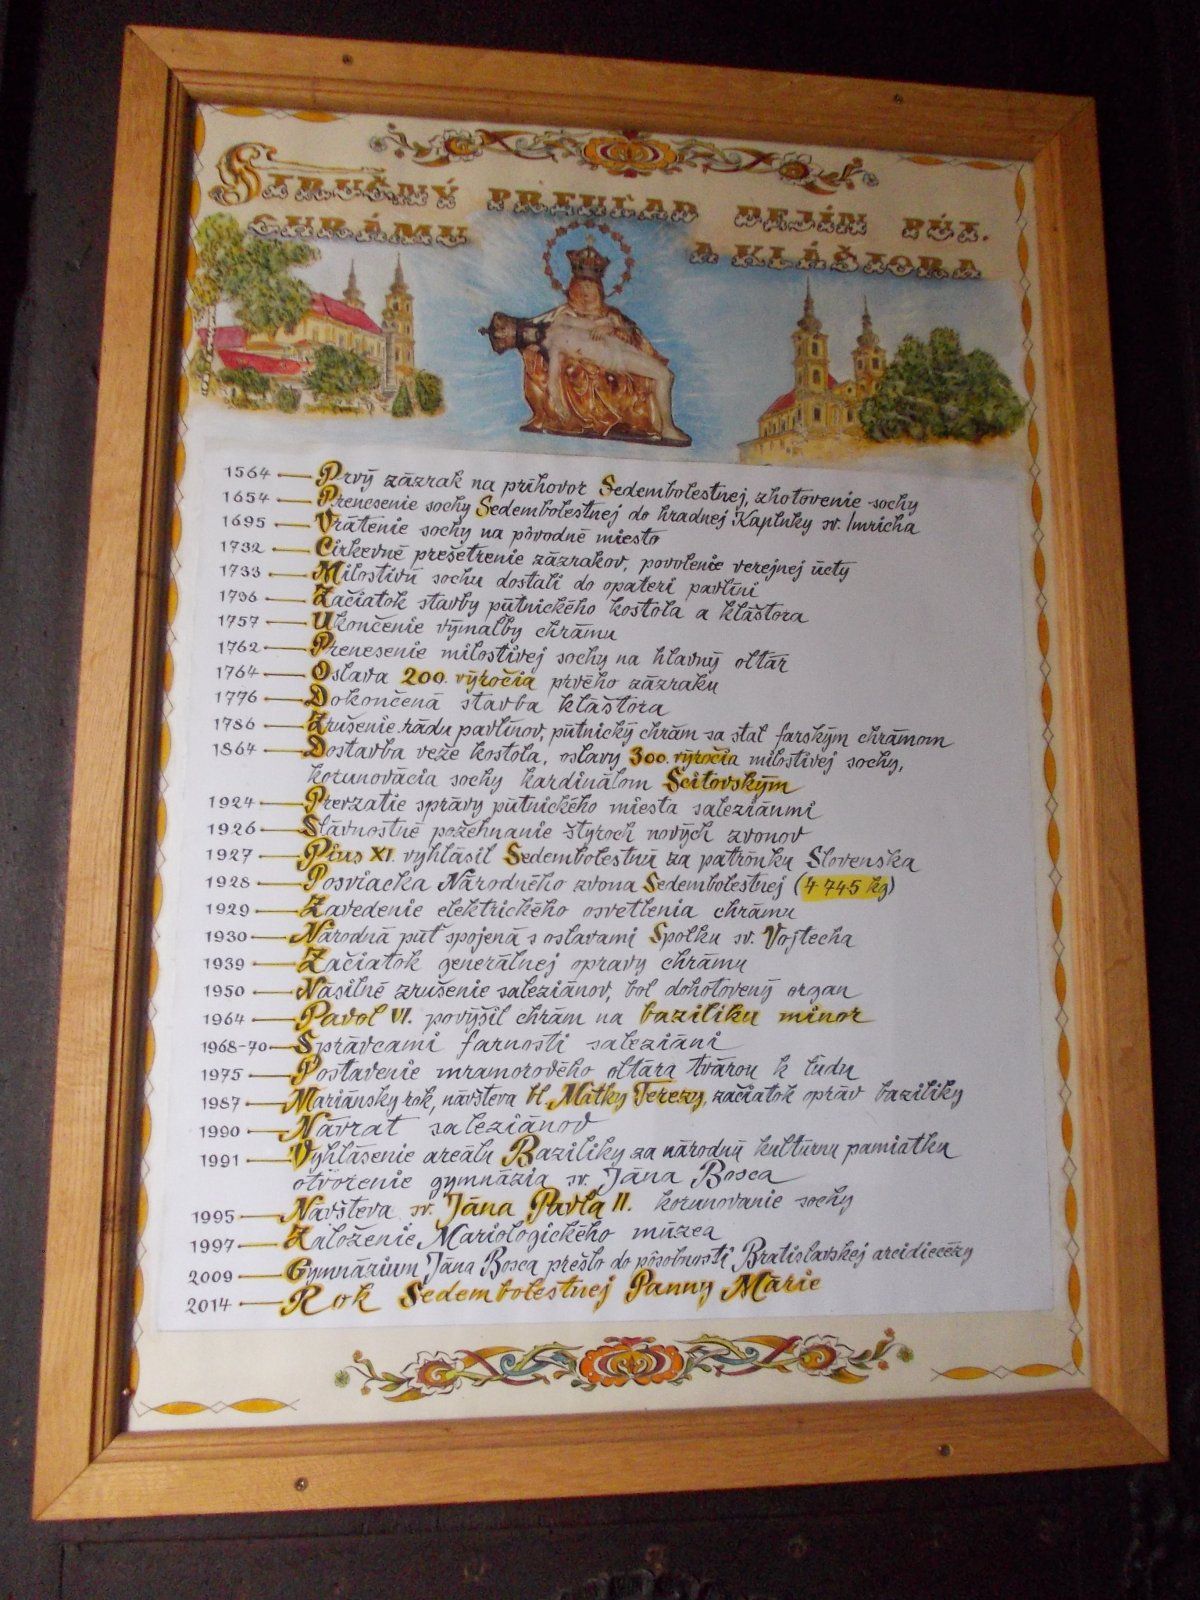 Stručný prehľad dejín pút.
chrámu a kláštora
1564 — Prvý zázrak na príhovor Sedembolestnej, zhotovenie sochy
1654 — Prenesenie sochy Sedembolestnej do hradnej Kaplnky sv. Imricha
1695 — Vrátenie sochy na pôvodné miesto
1732 — Cirkevné prešetrenie zázrakov, povolenie verejnej úcty
1733 — Milostivú sochu dostali do opatery pavlíni
1736 — Začiatok stavby pútnického kostola a kláštora
1757 — Ukončenie výmaľby chrámu
1762 — Prenesenie milostivej sochy na hlavný oltár
1764 — Oslava 200. výročia prvého zázraku
1776 — Dokončená stavba kláštora
1786 — Zrušenie rádu pavlínov, pútnický chrám sa stal farským chrámom
1864 — Dostavba veže kostola, oslavy 300. výročia milostivej sochy,
korunovácia sochy kardinálom Scitovským
1924 — Prevzatie správy pútnického miesta saleziánmi
1926 — Slávnostné požehnanie štyroch nových zvonov
1927 — Pius XI. vyhlásil Sedembolestnú za patrónku Slovenska
1928 — Posviacka Národného zvona Sedembolestnej (4 745 kg)
1929 — Zavedenie elektrického osvetlenia chrámu
1930 — Národná púť spojená s oslavami Spolku sv. Vojtecha
1939 — Začiatok generálnej opravy chrámu
1950 — Násilné zrušenie saleziánov, bol dohotovený organ
1964 — Pavol VI. povýšil chrám na baziliku minor
1968-70 — Správcami farnosti saleziáni
1975 — Postavenie mramorového oltára tvárou k ľudu
1987 — Mariánsky rok, návšteva bl. Matky Terezy, začiatok opráv baziliky
1990 — Návrat saleziánov
1991 — Vyhlásenie areálu Baziliky za národnú kultúrnu pamiatku
otvorenie gymnázia sv. Jána Bosca
1995 — Návšteva sv. Jána Pavla II. korunovanie sochy
1997 — Založenie Mariologického múzea
2009 — Gymnázium Jána Bosca prešlo do pôsobnosti Bratislavskej arcidiecézy
2014 — Rok Sedembolestnej Panny Márie